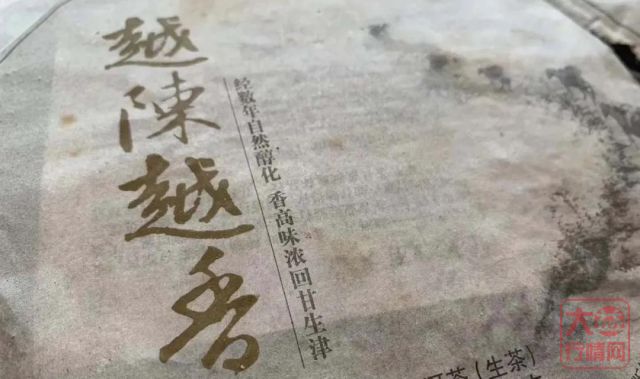 越陳越香
经数年自然醇化 香高味浓回甘生津
茶(生茶)
大
行情网